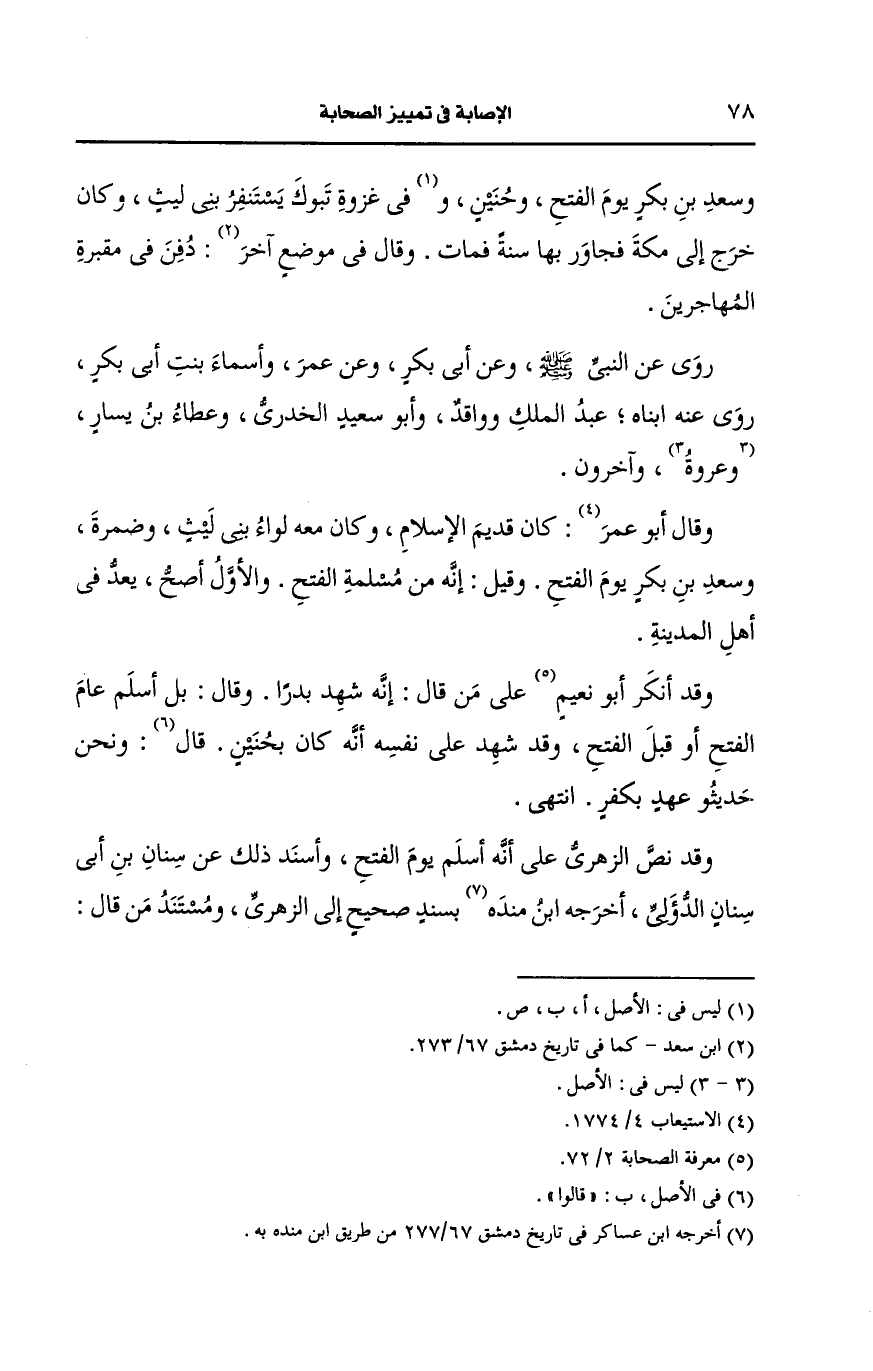 ٧٨ الإصابة فى تمييز الصحابة
وسعدِ بنِ بكرٍ يومَ الفتحِ ، وحُنَيْنٍ ، و(١) فى غزوةِ تَبوكَ يَسْتَنفِرُ بنِى ليثٍ ، وكان
خرَج إلى مكةَ فجاوَر بها سنةً فمات . وقال فى موضعٍ آخرَ(٢) : دُفِنَ فى مقبرةِ
المُهاجرينَ .
روَى عن النبىِّ ﷺ ، وعن أبى بكرٍ ، وعن عمرَ ، وأسماءَ بنتِ أبى بكرٍ ،
روَى عنه ابناه ؛ عبدُ الملكِ وواقدٌ ، وأبو سعيدٍ الخدرىُّ ، وعطاءُ بنُ يسارٍ ،
(٣وعروةُ٣) ، وآخرون .
وقال أبو عمرَ(٤) : كان قديمَ الإسلامِ ، وكان معه لواءُ بنِى لَيْثٍ ، وضمرةَ ،
وسعدِ بنِ بكرٍ يومَ الفتحِ . وقيل : إنَّه من مُسْلمةِ الفتحِ . والأوَّلُ أصحُّ ، يعدُّ فى
أهلِ المدينةِ .
وقد أنكَر أبو نعيمٍ(٥) على مَن قال : إنَّه شهِد بدرًا . وقال : بل أسلَم عامَ
الفتحِ أو قبلَ الفتحِ ، وقد شهِد على نفسِه أنَّه كان بحُنَيْنٍ . قال(٦) : ونحن
حَديثُو عهدٍ بكفرٍ . انتهى .
وقد نصَّ الزهرىُّ على أنَّه أسلَم يومَ الفتحِ ، وأسنَد ذلك عن سِنانِ بنِ أبى
سِنانٍ الدُّؤَلِىِّ ، أخرَجه ابنُ مندَه(٧) بسندٍ صحيحٍ إلى الزهرىِّ ، ومُسْتَنَدُ مَن قال :
(١) ليس فى : الأصل ، أ ، ب ، ص .
(٢) ابن سعد - كما فى تاريخ دمشق ٦٧/ ٢٧٣.
(٣ - ٣) ليس فى : الأصل .
(٤) الاستيعاب ٤/ ١٧٧٤.
(٥) معرفة الصحابة ٢/ ٧٢.
(٦) فى الأصل ، ب : « قالوا » .
(٧) أخرجه ابن عساكر فى تاريخ دمشق ٢٧٧/٦٧ من طريق ابن منده به .